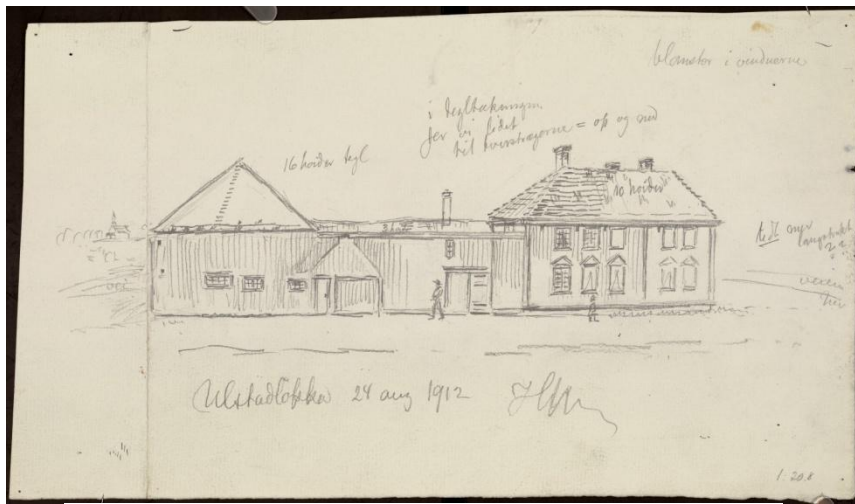 blomster i vinduerne
i tegltækningen
før vi fidet
til tverrtrægerne = op og ned
16 høider tegl
10 høider
veien
her
Ulstadløkka 24 aug 1912
1:20.8